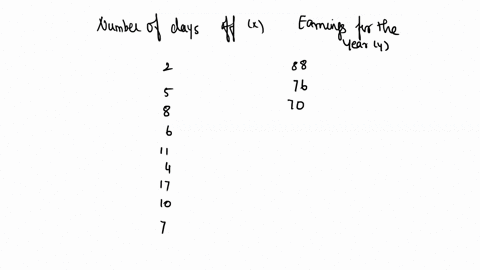 Number of days off (x) Earnings for the
Year (y)
2 88
5 76
8 70
6
11
4
17
10
7